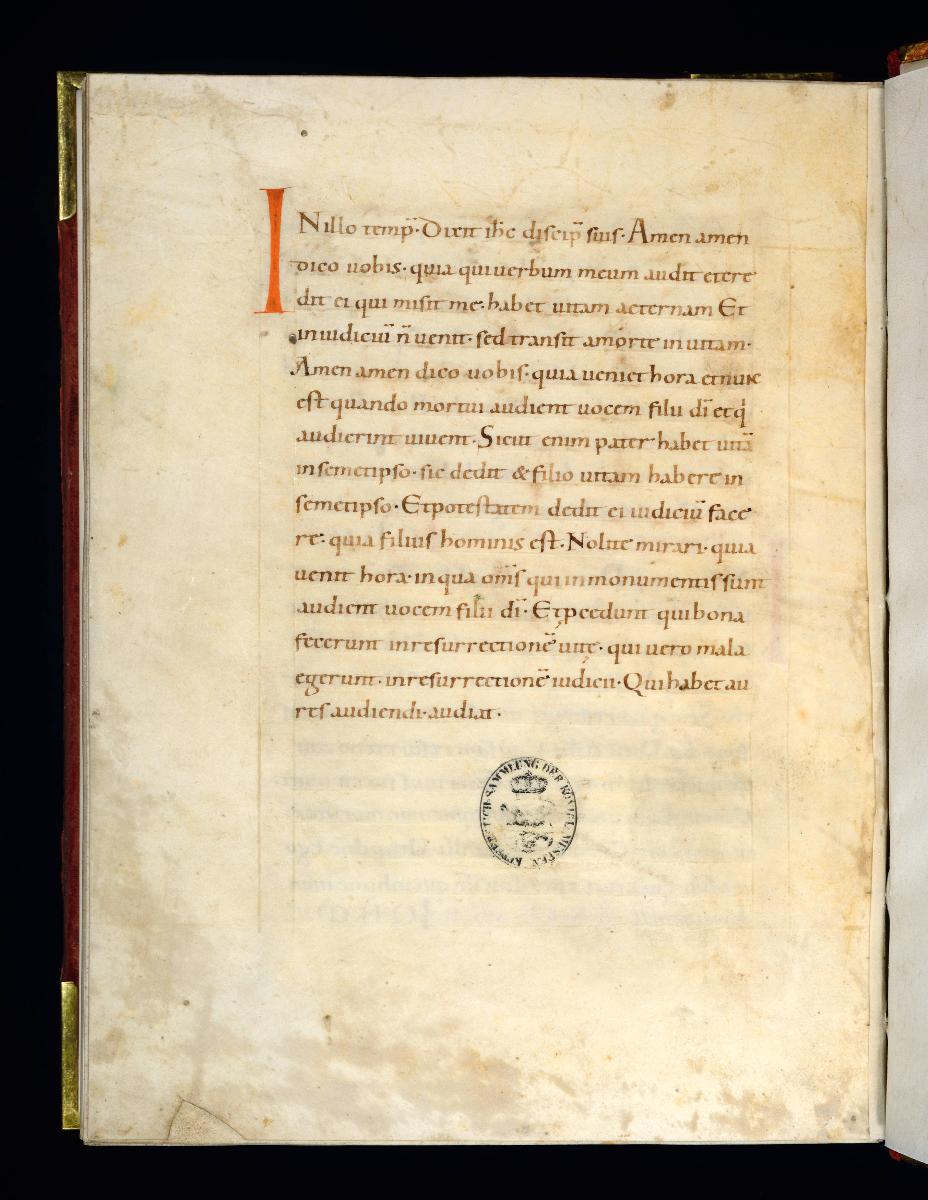 INillo temp̄· Dixit ih̄c discip̄ suis· Amen amen
dico uobis· quia qui uerbum meum audit et cre
dit ei qui misit me· habet uitam aeternam Et
in iudiciū n̄ uenit· sed transit a morte in uitam·
Amen amen dico uobis· quia ueniet hora et nunc
est quando mortui audient uocem filii dī et q̇
audierint uiuent· Sicut enim pater habet uitā
in semetipso· sic dedit & filio uitam habere in
semetipso· Et potestatem dedit ei iudiciū face
re· quia filius hominis est· Nolite mirari· quia
uenit hora· in qua om̄s qui in monumentis sunt
audient uocem filii dī· Et pcedunt qui bona
fecerunt in resurrectionē uitę· qui uero mala
egerunt· in resurrectionē iudicii· Qui habet au
res audiendi· audiat·
KUPFERSTICH-SAMMLUNG DER KÖNIGL. MUSEEN